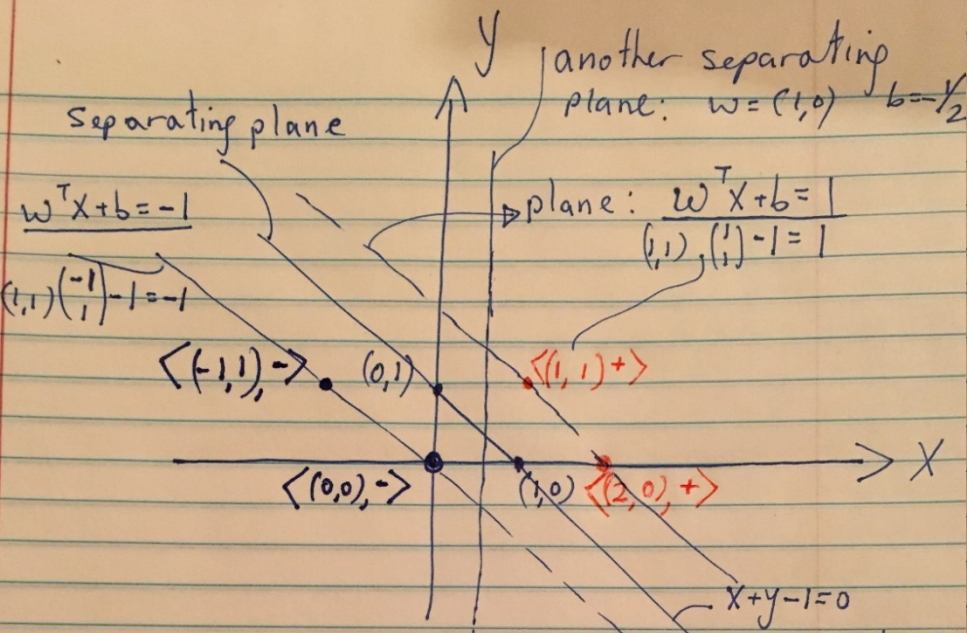 Y
another separating
plane: w = (1,0) b=-1/2
Separating plane
wᵀX+b=-1
plane: wᵀX+b=1
(1,1),(1 1)-1=1
(1,1)(-1 1)-1=-1
<(-1,1),->
(0,1)
<(1,1)+>
X
<(0,0),->
(1,0)
<(2,0),+>
X+y-1=0